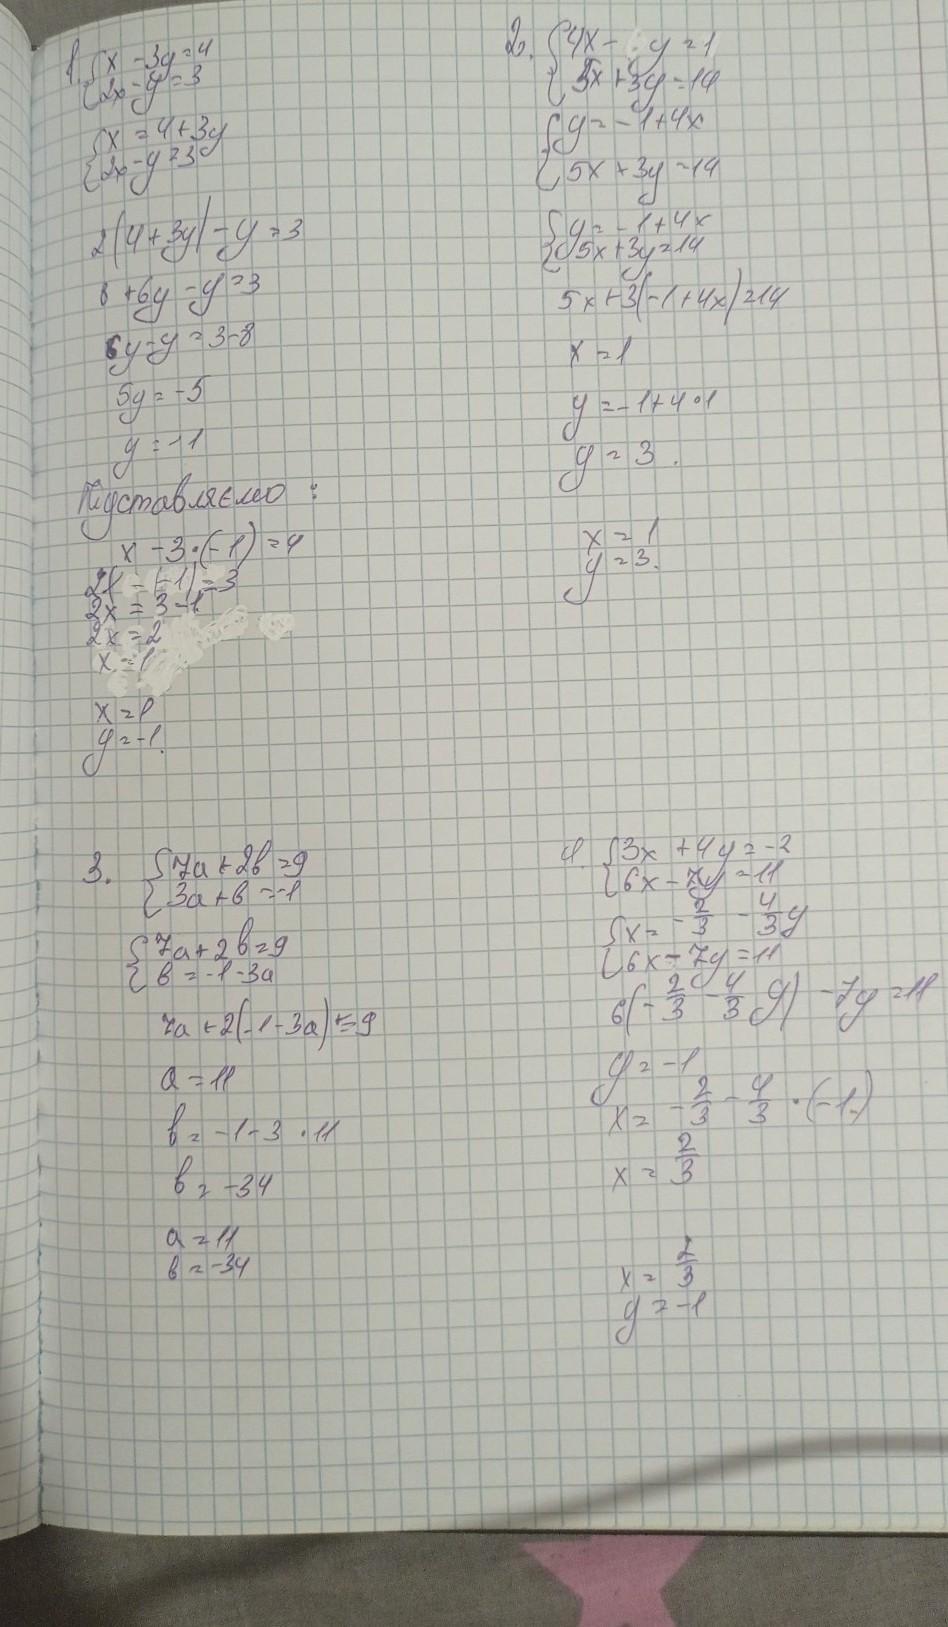 1. {x - 3y = 4
{2x - y = 3
{x = 4 + 3y
{2x - y = 3
2(4 + 3y) - y = 3
8 + 6y - y = 3
6y - y = 3 - 8
5y = -5
y = -1
Підставляємо :
x - 3 · (-1) = 4
2x = 3 - 1
2x = 2
x = 1
x = 1
y = -1.
2. {4x - y = 1
{5x + 3y = 14
{y = -1 + 4x
{5x + 3y = 14
{y = -1 + 4x
{5x + 3y = 14
5x + 3(-1 + 4x) = 14
x = 1
y = -1 + 4 · 1
y = 3.
x = 1
y = 3.
3. {7a + 2b = 9
{3a + b = -1
{7a + 2b = 9
{b = -1 - 3a
7a + 2(-1 - 3a) = 9
a = 11
b = -1 - 3 · 11
b = -34
a = 11
b = -34
4. {3x + 4y = -2
{6x - 7y = 11
{x = -2/3 - 4/3 y
{6x - 7y = 11
6(-2/3 - 4/3 y) - 7y = 11
y = -1
x = -2/3 - 4/3 · (-1)
x = 2/3
x = 2/3
y = -1